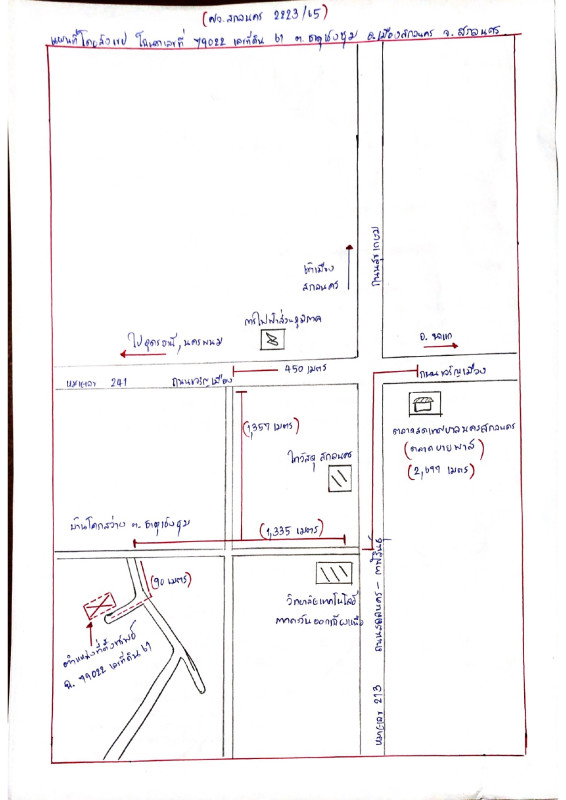 (ศจ.สกลนคร 2223/65)
แผนที่โดยสังเขป โฉนดเลขที่ 79022 เลขที่ดิน 61 ต.ธาตุเชิงชุม อ.เมืองสกลนคร จ.สกลนคร
ถนนสุขเกษม
เข้าเมือง
สกลนคร
การไฟฟ้าส่วนภูมิภาค
ไปอุดรธานี, นครพนม
450 เมตร
หมายเลข 241
ถนนขวัญเมือง
ถนนขวัญเมือง
(1,357 เมตร)
ไทวัสดุ สกลนคร
ตลาดสดเทศบาลนครสกลนคร
(ตลาดบายพาส)
(2,677 เมตร)
บ้านโคกสว่าง ต.ธาตุเชิงชุม
(1,335 เมตร)
(90 เมตร)
วิทยาลัยเทคโนโลยี
ภาคตะวันออกเฉียงเหนือ
ตำแหน่งที่ตั้งทรัพย์
ฉ. 79022 เลขที่ดิน 61
หมายเลข 213